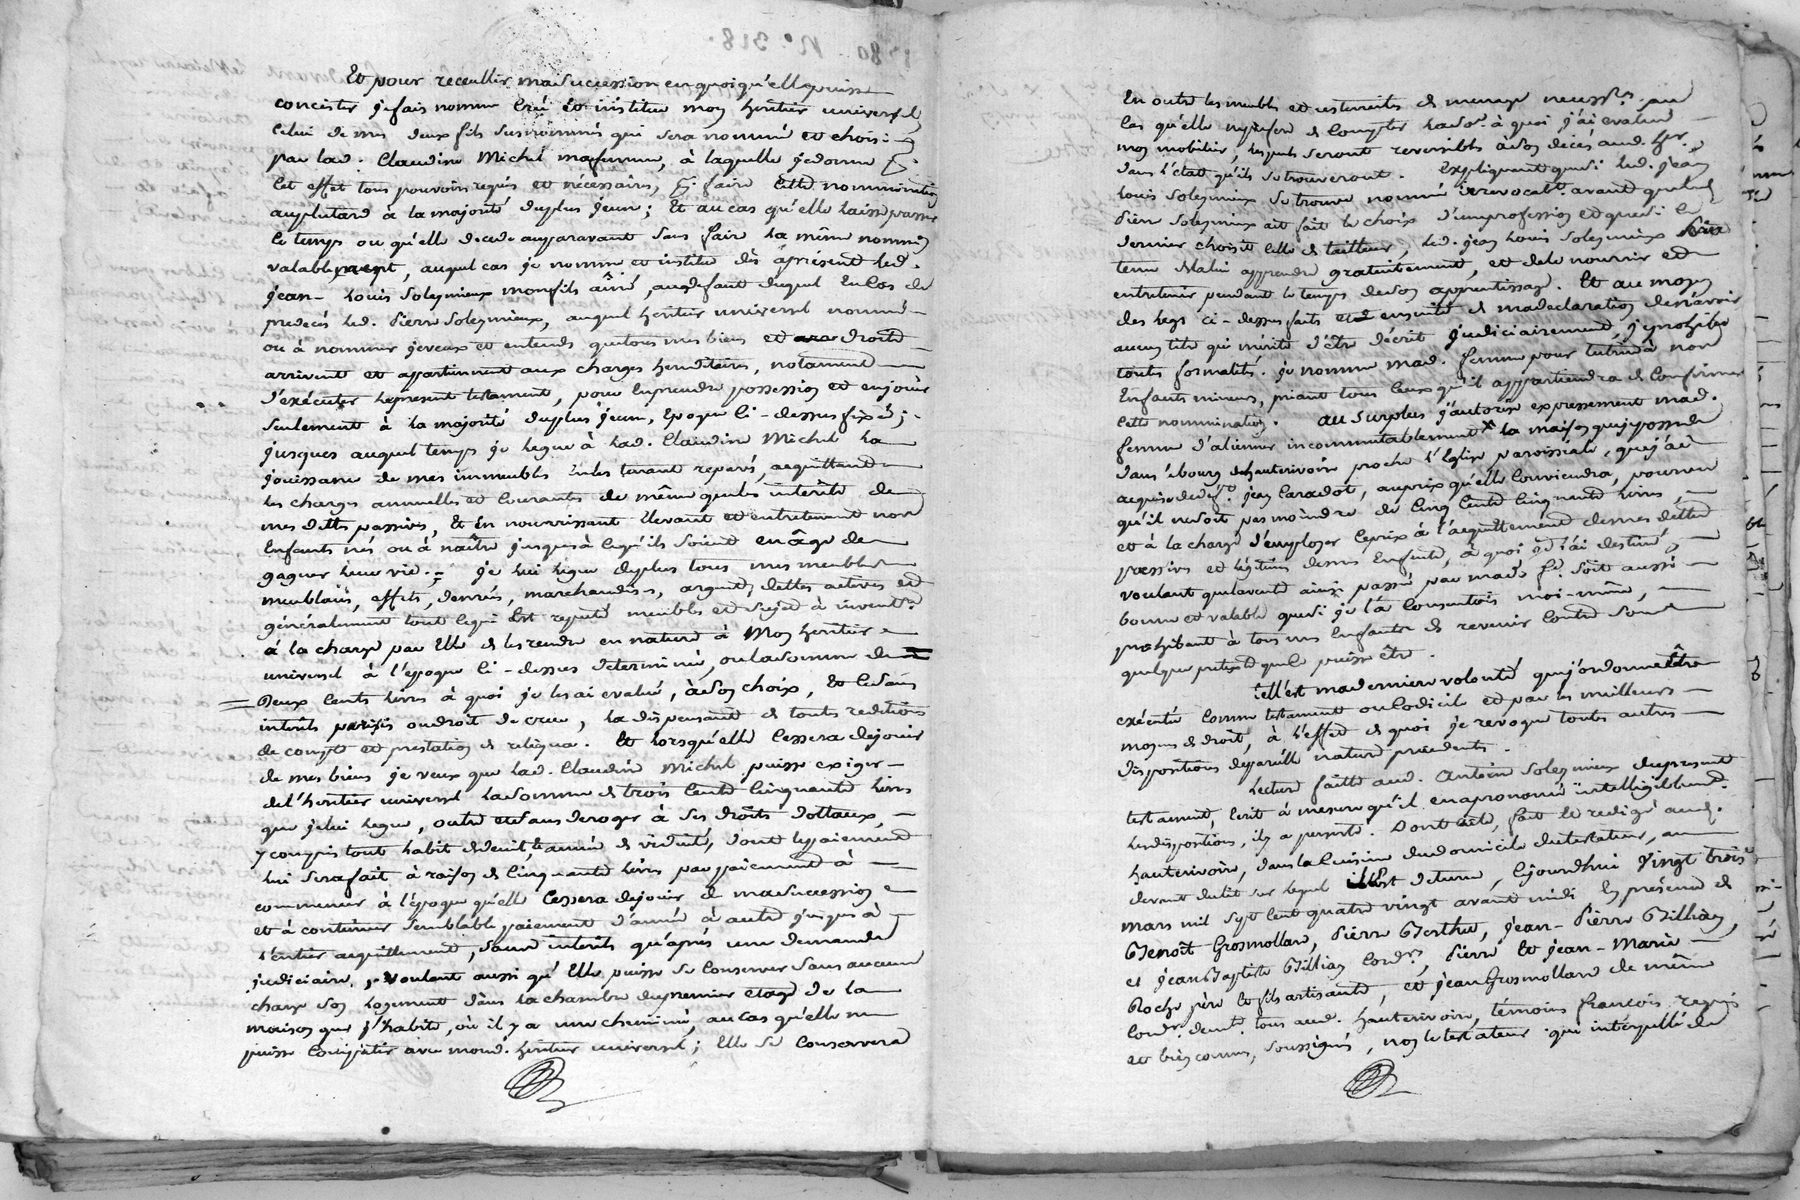 Et pour receullir ma succession en quoi qu'elle puisse
concister je fais nomme Créé et institue mon héritier universel
Celui de mes deux fils susnommés qui sera nommé et choisi
par lad. Claudine Michel ma femme, à laquelle je donne
Cet effet tous pouvoirs requis et nécessaires, faire cette nomination
au plutard à la majorité du plus jeun; Et au cas qu'elle laisse passer
le temps ou qu'elle décede auparavant sans faire la même nomin
valablement, auquel cas je nomme et institue dès àprésent led.
jean-Louis Soleymieux mon fils âiné, audefaut duquel En cas de
predecés led. Pierre Soleymieux, auquel héritier universel nommé
ou à nommer je veux et entends que tous mes biens et droits
arrivent et appartiennent aux charges hereditaires, notament
d'exécuter le present testament, pour En prendre possession et en jouir
seulement à la majorité du plus jeun, Epoque Ci-dessus fixée;
jusques auquel temps je legue à lad. Claudine Michel la
jouissance de mes immeubles En les tenant reparés, acquittant
les charges annuelles et Courantes de même que les intérêts de
mes dettes passives, Et En nourrissant Elevant et entretenant nos
Enfants nés ou à naître jusques à ce qu'ils soient en âge de
gagner leur vie. = je lui legue de plus tous mes meubles
meublans, effets, denrées, marchandises, argent, dettes actives et
généralement tout ce qui Est reputé meubles et sujet à invent.re
à la charge par Elle de les rendre en nature à Mon héritier
universel à l'époque Ci-dessus déterminée, ou la somme de
= Deux Cents livres à quoi je les ai evalué, à son choix, Et le sans
intérêts parisis ou droit de crue, la dispensant de toute reddition
de compte et prestation de reliqua. Et lorsqu'elle Cessera de jouir
de mes biens je veux que lad. Claudine Michel puisse exiger
de l'héritier universel la somme de trois Cents Cinquante livres
que je lui legue, outre et sans deroger à ses droits dottaux,
y compris tout habit de deuil, année de viduité, dont le paiement
lui sera fait à raison de Cinquante livres par paiement à
commencer à l'époque qu'elle Cessera de jouir de ma succession
et à continuer semblable paiement d'année à autre jusques à
l'entier acquittement, sans intérêts qu'après une demande
judiciaire, voulant aussi qu'Elle puisse se Conserver sans aucune
charge son logement dans la chambre du premier Etage de la
maison que j'habite, où il y a une cheminée, au cas qu'elle ne
puisse Compatir avec mond. héritier universel; Elle se Conservera
En outre les meubles et ustencilles de menage necess.res au
Cas qu'elle refuse de Compter la à quoi j'ai evalué
mon mobilier, lesquels seront reversibles à son decès aud. her.
dans l'état qu'ils se trouveront. Expliquant que si led. jean
Louis Soleymieux se trouve nommé irrevocabl. avant que led.
Pierre Soleymieux ait fait le choix d'une profession et que si le
dernier choisit Celle de tailleur, led. jean Louis Soleymieux sera
tenu de la lui apprendre gratuitement, et de le nourrir et
entretenir pendant le temps de son apprentissage. Et au moyen
des legs ci-dessus faits et ensuite de ma declaration de n'avoir
aucun titre qui mérite d'être décrit judiciairement, j'y prohibe
toute formalité. je nomme mad. femme pour tutrice à nos
Enfants mineurs, priant tous Ceux qu'il appartiendra de Confirmer
Cette nomination. Au surplus j'autorise expressement mad.
femme d'aliéner incommutablement la maison que je possede
dans l'ebourg d'hauterivoire proche l'Eglise paroissiale, que j'ai
acquise de jean Caradot, au prix qu'elle Conviendra, pourvu
qu'il ne soit pas moindre de Cinq Cents Cinquante livres,
et à la charge d'employer le prix à l'acquittement de mes dettes
passives et légitimes de mes Enfants, à quoi je l'ai destiné,
voulant que la vente ainsi passée par mad. f. soit aussi
bonne et valable que si je l'a Consentois moi-même,
prohibant à tous mes Enfants de revenir Contre sous
quelque pretexte que puisse être.
telle est ma derniere volonté que j'ordonne être
exécutée Comme testament ou Codicil et par les meilleurs
moyens de droit, à l'effet de quoi je revoque toutes autres
dispositions de pareille nature precedents.
Lecture faitte aud. Antoine Soleymieux du present
testament, Ecrit à mesure qu'il en a prononcé intelligiblement
les dispositions, il y a persisté. Dont acte, fait et redigé aud.
hauterivoire, dans la Cuisine du domicile du testateur, au
devant du lit sur lequel il est detenu, Cejourdhui vingt trois
mars mil sept cent quatre vingt avant midi En présence de
Benoît Grosmollard, Pierre Berthet, jean-Pierre Billiay,
et jean Baptiste Billiay Cord.rs, Pierre Et jean-Marie
Roche père Et fils artisants, et jean Grosmollard de même
Cord. demt. tous aud. hauterivoire, témoins françois requis
et bien connus, soussignés, non le testateur qui interpellé de